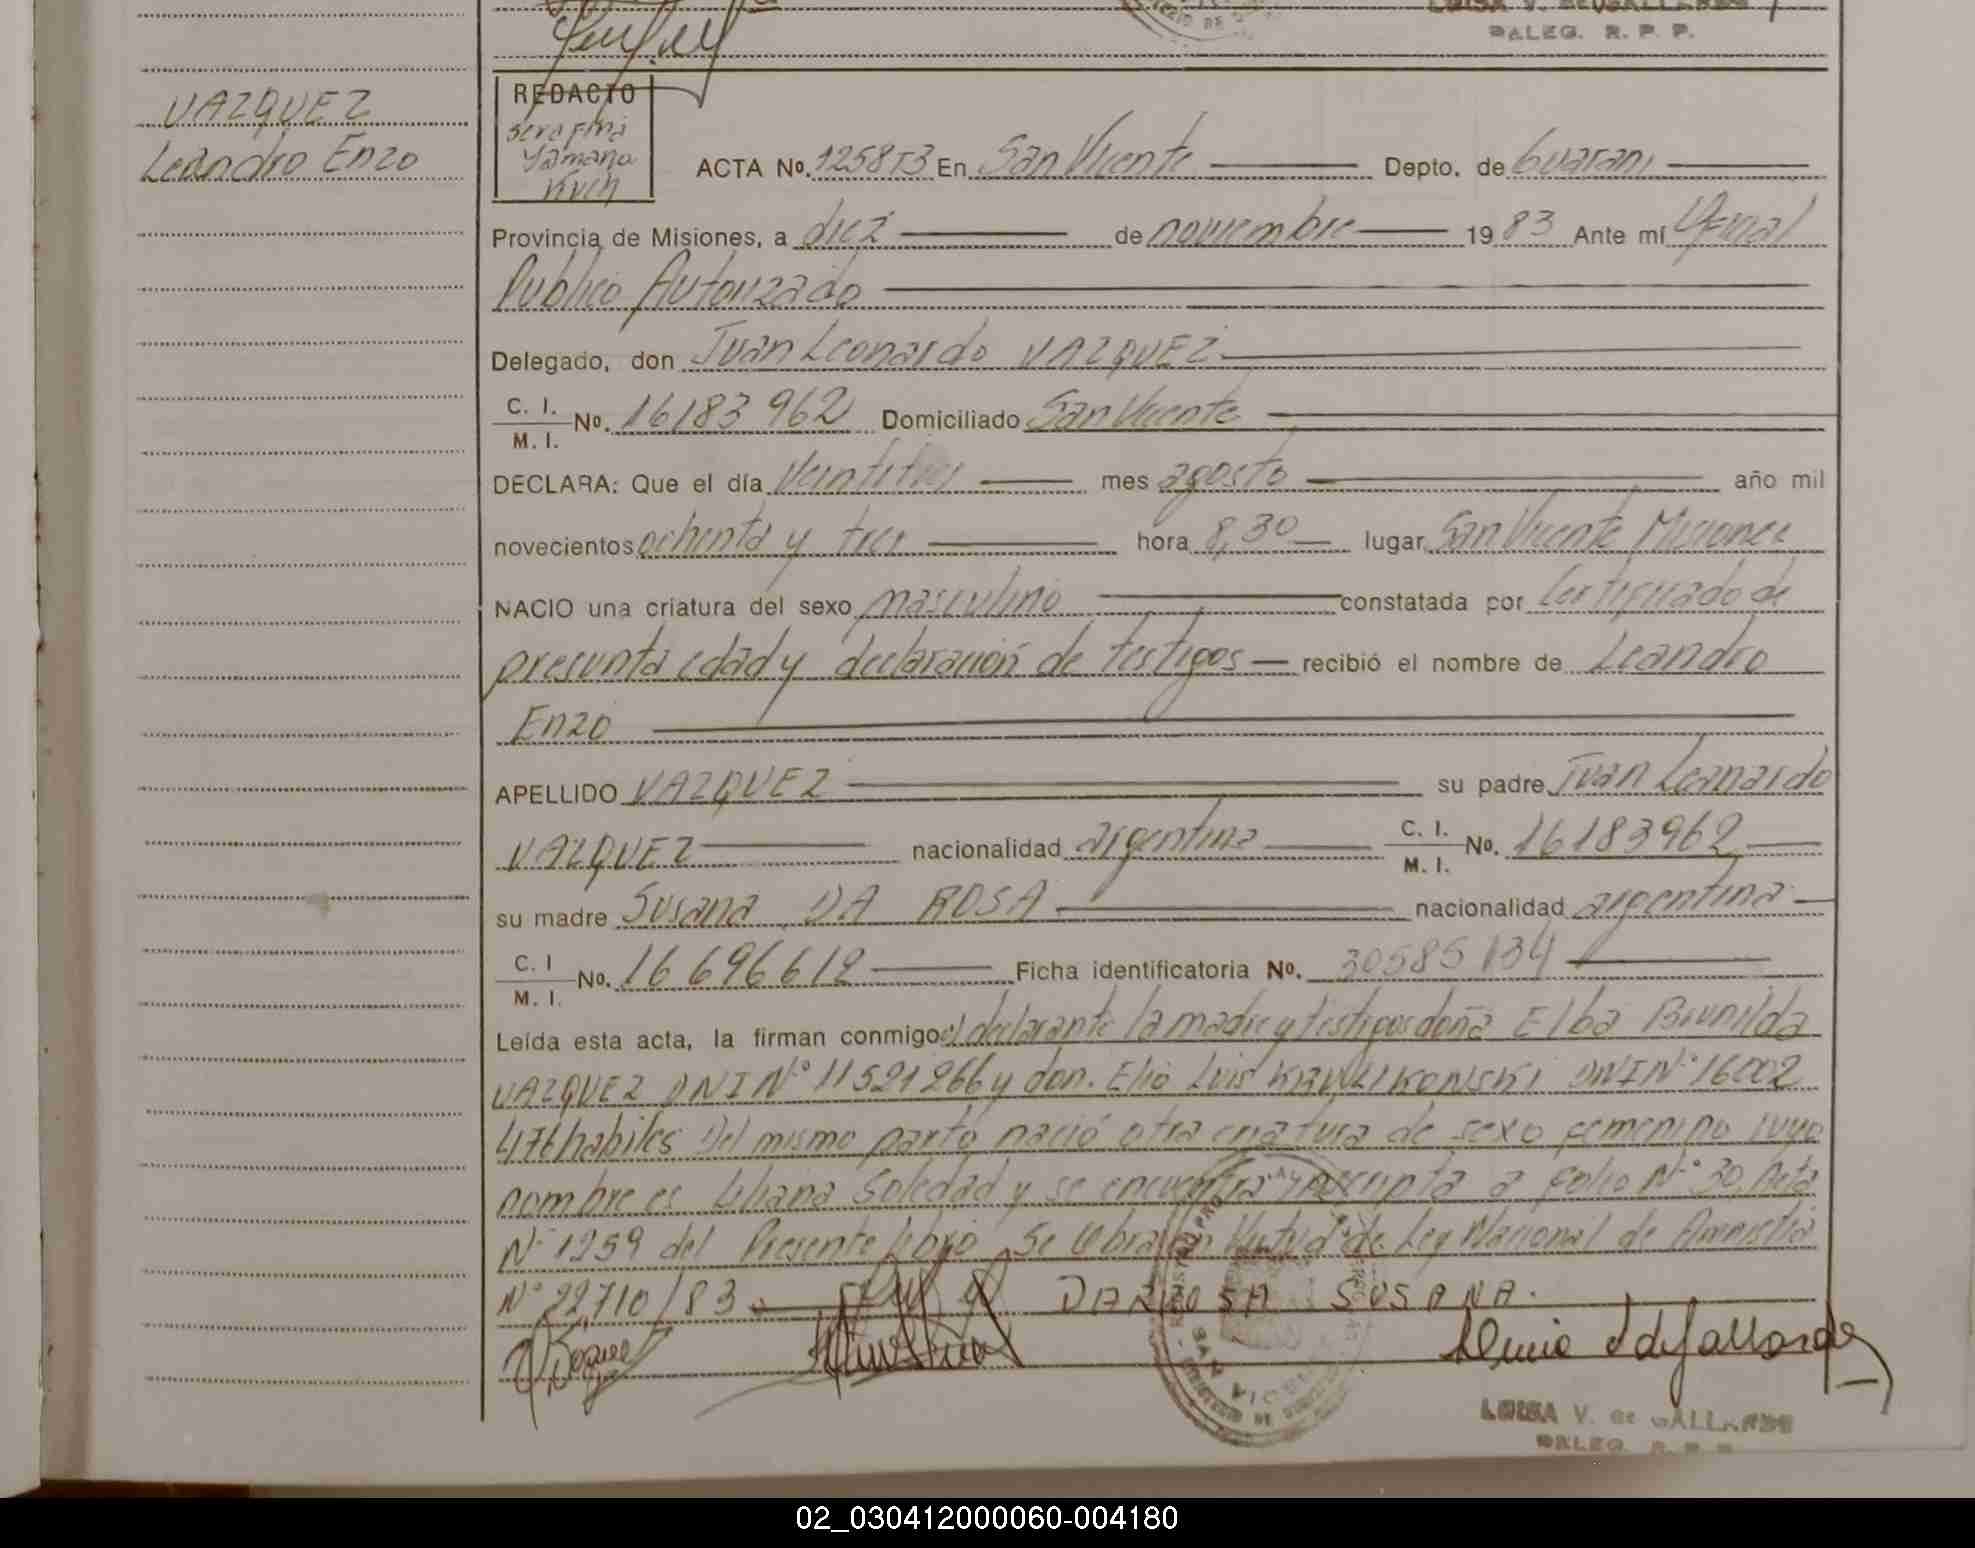 LUISA V. de GALLARDE
DALEG. R. P. P.
VAZQUEZ
Leandro Enzo
REDACTO
Serafina
Yamana
Kuch
ACTA No. 1258 T3 En San Vicente Depto. de Guarani
Provincia de Misiones, a diez de noviembre 19 83 Ante mí Oficial
Publico Autorizado
Delegado, don Juan Leonardo VAZQUEZ
C. I. M. I. No. 16183962 Domiciliado San Vicente
DECLARA: Que el día Veintitres mes agosto año mil
novecientos ochenta y tres hora 8,30 lugar San Vicente Misiones
NACIO una criatura del sexo masculino constatada por Certificado de
presunta edad y declaración de testigos recibió el nombre de Leandro
Enzo
APELLIDO VAZQUEZ su padre Juan Leonardo
VAZQUEZ nacionalidad argentina C. I. M. I. No. 16183962
su madre Susana DA ROSA nacionalidad argentina
C. I M. I. No. 16 696 612 Ficha identificatoria No. 30585134
Leída esta acta, la firman conmigo el declarante la madre y testigos doña Elba Brunilda
VAZQUEZ DNI N° 11521266 y don. Elio Luis KRVLIKONSKI DNI N° 16002
476 habiles Del mismo parto nació otra criatura de sexo femenino cuyo
nombre es Liliana Soledad y se encuentra inscripta a folio N° 30 Acta
N° 1259 del Presente Libro. Se labra en Virtud de Ley Nacional de Amnistia
N° 22,710/83
DA ROSA SUSANA.
SAN VICENTE
LUISA V. de GALLARDE
DALEG. R. P. P.
02_030412000060-004180